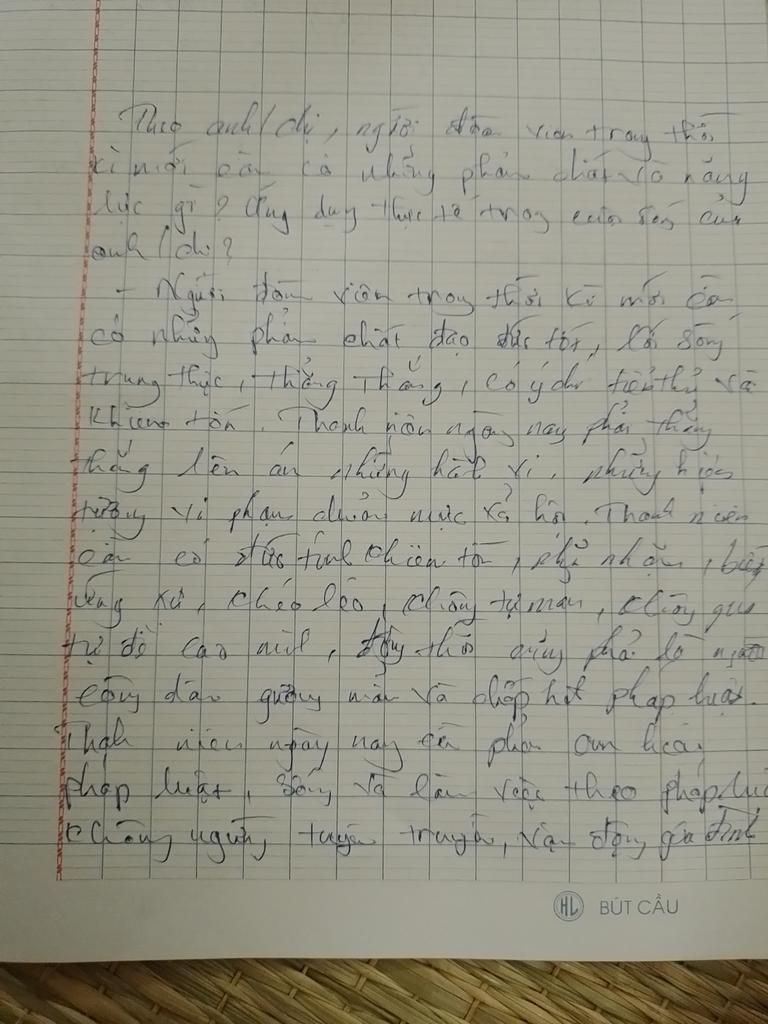 Theo anh/chị, người đoàn viên trong thời
kì mới cần có những phẩm chất và năng
lực gì? ứng dụng thực tế trong cuộc sống của
anh/chị?
- Người đoàn viên trong thời kì mới cần
có những phẩm chất đạo đức tốt, lối sống
trung thực, thẳng thắng, có ý chí tiến thủ và
khiêm tốn. Thanh niên ngày nay phải thẳng
thắng lên án những hành vi, những hiện
tượng vi phạm chuẩn mực xã hội. Thanh niên
cần có đức tính khiêm tốn, nhã nhặn, biết
ứng xử, khéo léo, không tự mãn, không quá
tự đề cao mình, đồng thời cũng phải là người
công dân gương mẫu và chấp hành pháp luật.
Thanh niên ngày nay cần phải am hiểu
pháp luật, sống và làm việc theo pháp luật
không ngừng tuyên truyền, vận động gia đình
HL BÚT CẦU